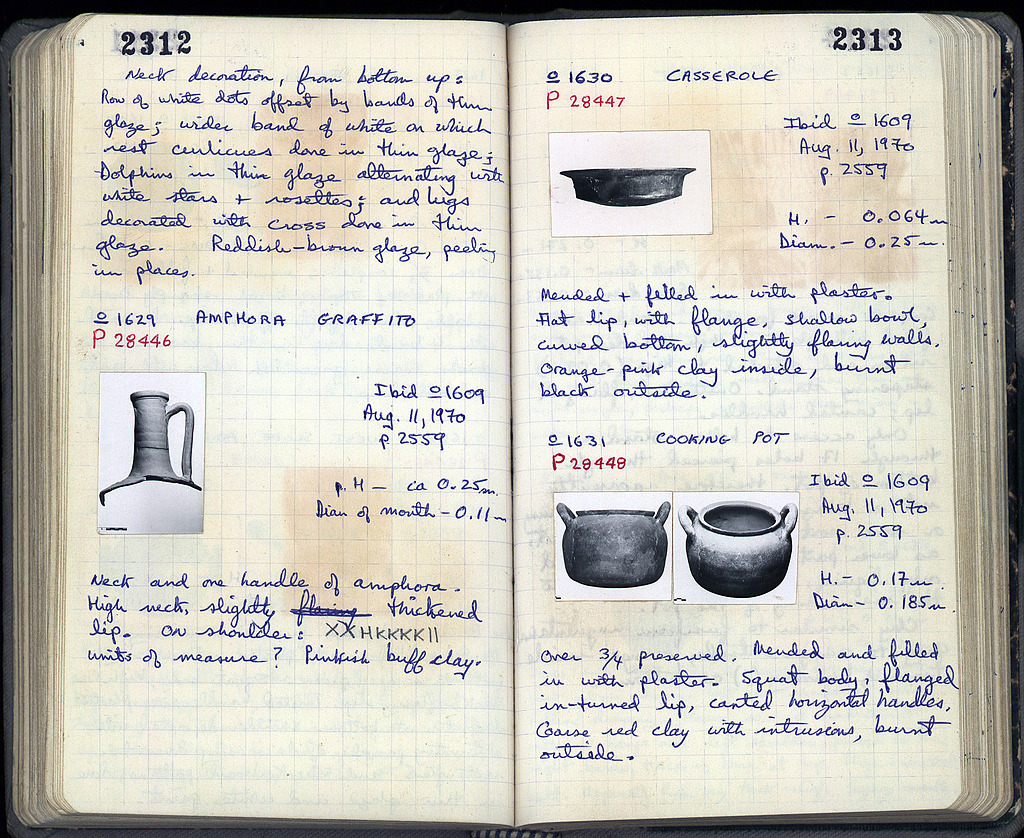 2312
Neck decoration, from bottom up:
Row of white dots offset by bands of thin
glaze; wider band of white on which
rest curlicues done in thin glaze;
Dolphins in thin glaze alternating with
white stars + rosettes; and lugs
decorated with cross done in thin
glaze. Reddish-brown glaze, peeling
in places.
o 1629 AMPHORA GRAFFITO
P 28446
Ibid o 1609
Aug. 11, 1970
p. 2559
p. H — ca 0.25m.
Diam of mouth - 0.11m
Neck and one handle of amphora.
High neck, slightly flaring thickened
lip. On shoulder: XXHKKKKII
units of measure? Pinkish buff clay.
2313
o 1630 CASSEROLE
P 28447
Ibid o 1609
Aug. 11, 1970
p. 2559
H. - 0.064m
Diam. - 0.25m.
Mended + filled in with plaster.
Flat lip, with flange, shallow bowl,
curved bottom, slightly flaring walls.
Orange-pink clay inside, burnt
black outside.
o 1631 COOKING POT
P 28448
Ibid o 1609
Aug. 11, 1970
p. 2559
H. - 0.17m.
Diam - 0.185m.
Over 3/4 preserved. Mended and filled
in with plaster. Squat body, flanged
in-turned lip, canted horizontal handles.
Coarse red clay with intrusions, burnt
outside.